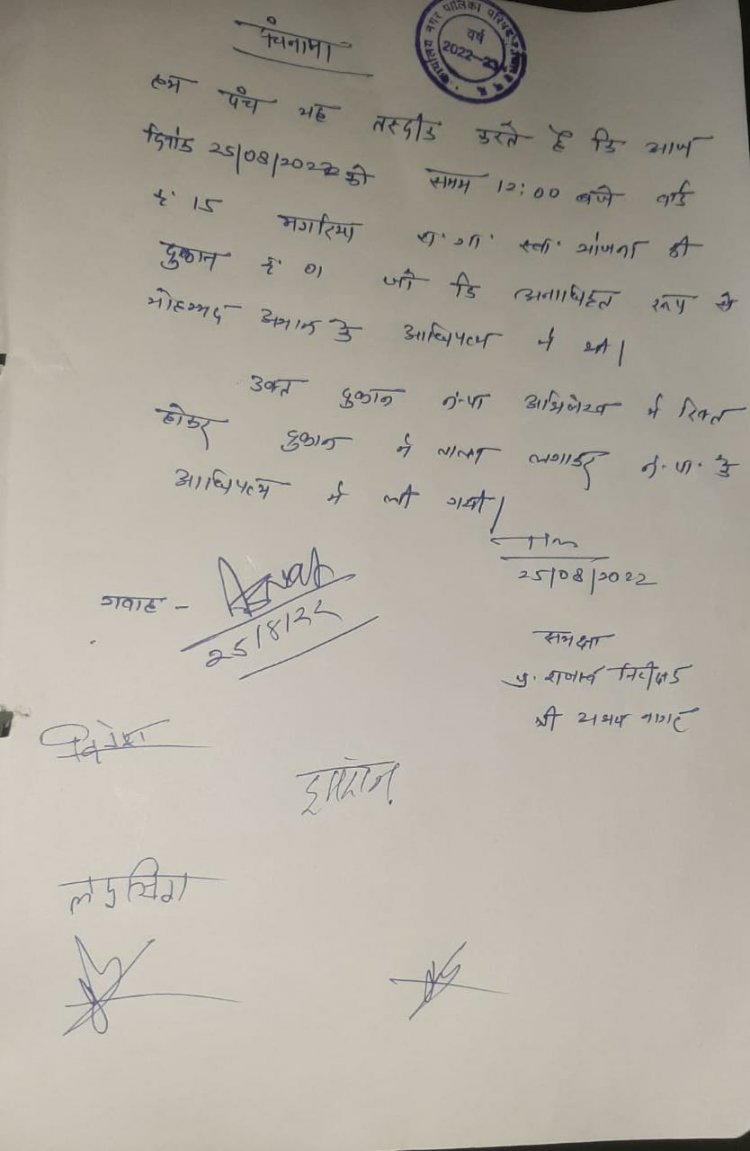 कार्यालय नगर पालिका परिषद
वर्ष
2022-23
पंचनामा
हम पंच यह तस्दीक करते है कि आज
दिनांक 25/08/2022 को समय 12:00 बजे वार्ड
क्रं 15 मगरिया रा. गा. स्वा. योजना की
दुकान क्रं 01 जो कि अनाधिकृत रूप से
मोहम्मद अमान के आधिपत्य में थी।
उक्त दुकान न.पा अभिलेख में रिक्त
होकर दुकान में ताला लगाकर न.पा. के
आधिपत्य में ली गयी।
25/08/2022
गवाह -
25/8/22
समक्ष
प्र. राजस्व निरीक्षक
श्री अभय नागर
इमरान